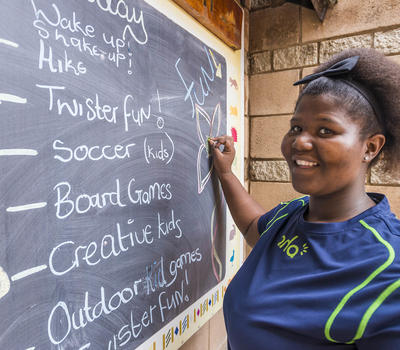 Wake up
Shake-up!
Hike
Twister fun!
Soccer (kids)
Board Games
Creative kids
Outdoor kid games
Twister fun!
Fun